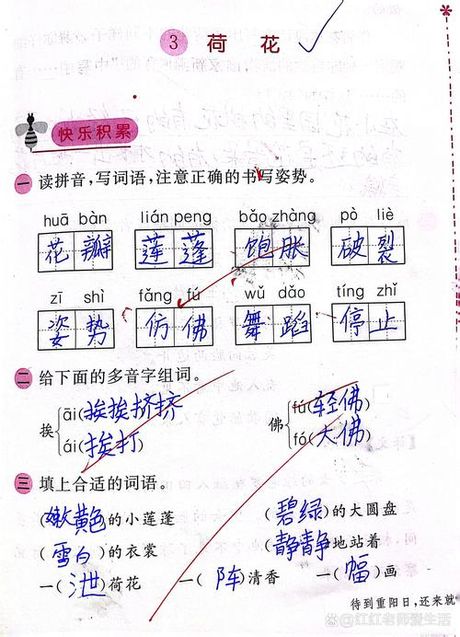 3 荷花
快乐积累
一 读拼音,写词语,注意正确的书写姿势。
huā bàn lián peng bǎo zhàng pò liè
花瓣 莲蓬 饱胀 破裂
zī shì fǎng fú wǔ dǎo tíng zhǐ
姿势 仿佛 舞蹈 停止
二 给下面的多音字组词。
挨 āi(挨挨挤挤) ái(挨打)
佛 fú(轻佛) fó(大佛)
三 填上合适的词语。
(嫩黄色)的小莲蓬 (碧绿)的大圆盘
(雪白)的衣裳 (静静)地站着
一(池)荷花 一(阵)清香 一(幅)画
待到重阳日,还来就
@红红老师爱生活